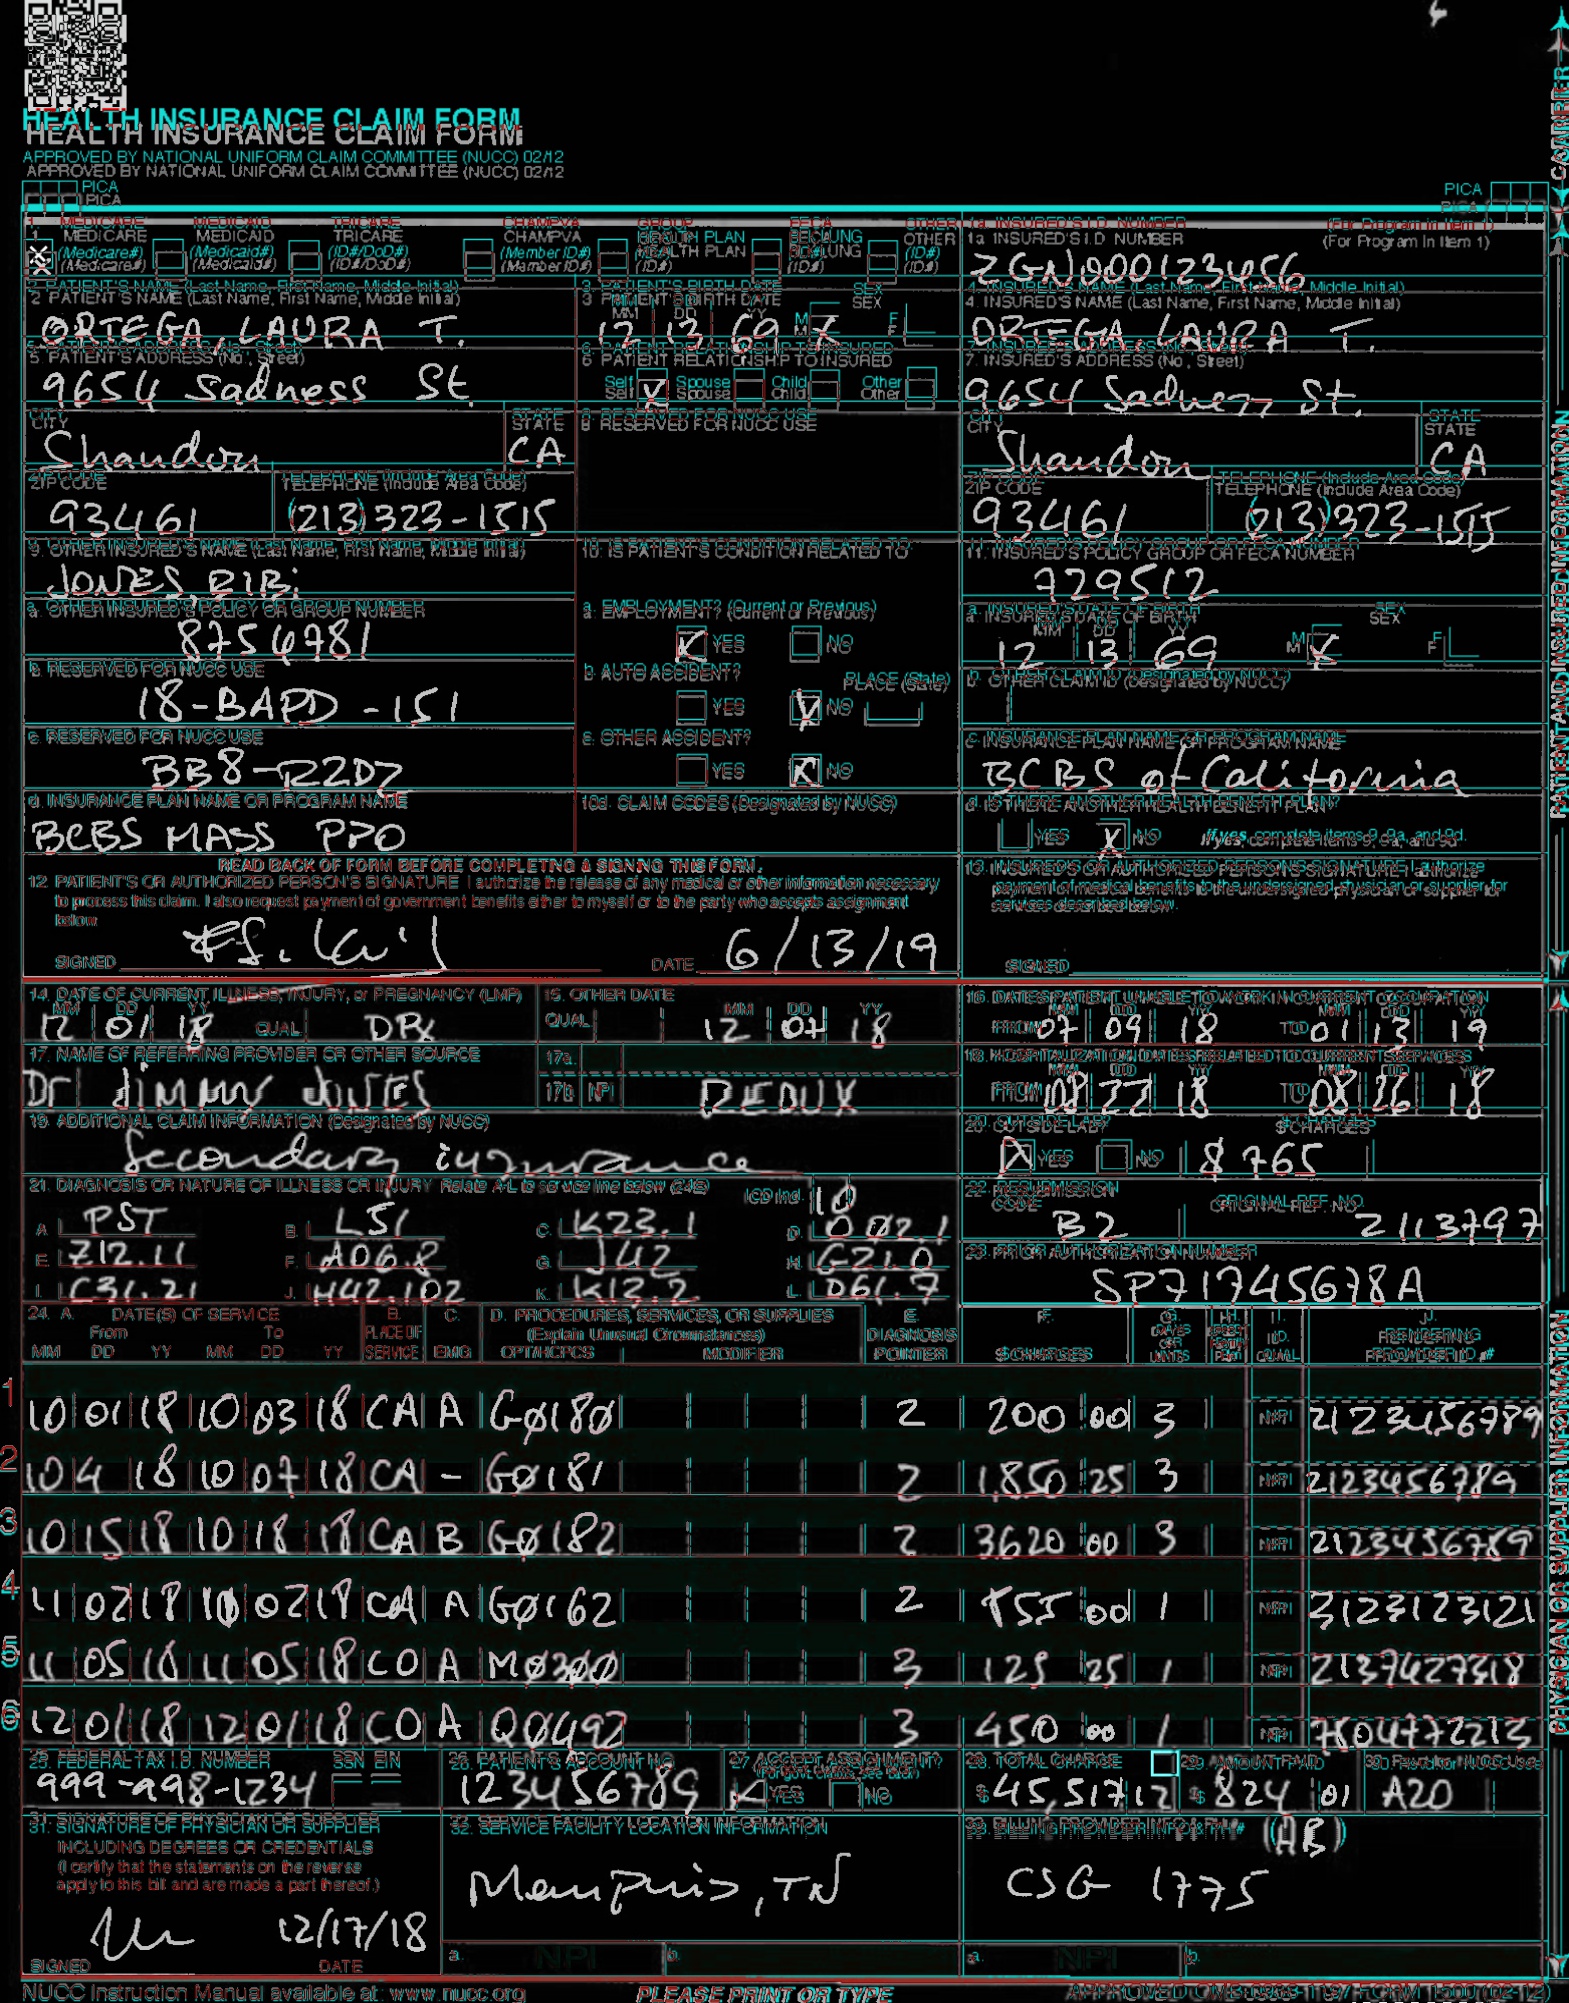 HEALTH INSURANCE CLAIM FORM
APPROVED BY NATIONAL UNIFORM CLAIM COMMITTEE (NUCC) 02/12
PICA PICA
CARRIER
1. MEDICARE MEDICAID TRICARE CHAMPVA GROUP HEALTH PLAN FECA BLK LUNG OTHER
(Medicare#) (Medicaid#) (ID#/DoD#) (Member ID#) (ID#) (ID#) (ID#)
X
1a. INSURED'S I.D. NUMBER (For Program in Item 1)
ZGN000123456
2. PATIENT'S NAME (Last Name, First Name, Middle Initial)
ORTEGA, LAURA T.
3. PATIENT'S BIRTH DATE SEX
MM DD YY M F
12 13 69 X
4. INSURED'S NAME (Last Name, First Name, Middle Initial)
ORTEGA, LAURA T.
5. PATIENT'S ADDRESS (No., Street)
9654 Sadness St.
6. PATIENT RELATIONSHIP TO INSURED
Self X Spouse Child Other
7. INSURED'S ADDRESS (No., Street)
9654 Sadness St.
CITY STATE
Shandon CA
8. RESERVED FOR NUCC USE
CITY STATE
Shandon CA
ZIP CODE TELEPHONE (Include Area Code)
93461 (213) 323-1515
ZIP CODE TELEPHONE (Include Area Code)
93461 (213) 323-1515
9. OTHER INSURED'S NAME (Last Name, First Name, Middle Initial)
JONES, BIBi
10. IS PATIENT'S CONDITION RELATED TO:
11. INSURED'S POLICY GROUP OR FECA NUMBER
729512
a. OTHER INSURED'S POLICY OR GROUP NUMBER
8754781
a. EMPLOYMENT? (Current or Previous)
X YES NO
a. INSURED'S DATE OF BIRTH SEX
MM DD YY M F
12 13 69 X
b. RESERVED FOR NUCC USE
18-BAPD-151
b. AUTO ACCIDENT? PLACE (State)
YES X NO
b. OTHER CLAIM ID (Designated by NUCC)
c. RESERVED FOR NUCC USE
BB8-R2D2
c. OTHER ACCIDENT?
YES X NO
c. INSURANCE PLAN NAME OR PROGRAM NAME
BCBS of California
d. INSURANCE PLAN NAME OR PROGRAM NAME
BCBS MASS PPO
10d. CLAIM CODES (Designated by NUCC)
d. IS THERE ANOTHER HEALTH BENEFIT PLAN?
YES X NO If yes, complete items 9, 9a, and 9d.
PATIENT AND INSURED INFORMATION
READ BACK OF FORM BEFORE COMPLETING & SIGNING THIS FORM.
12. PATIENT'S OR AUTHORIZED PERSON'S SIGNATURE I authorize the release of any medical or other information necessary
to process this claim. I also request payment of government benefits either to myself or to the party who accepts assignment
below.
SIGNED DATE 6/13/19
13. INSURED'S OR AUTHORIZED PERSON'S SIGNATURE I authorize
payment of medical benefits to the undersigned physician or supplier for
services described below.
SIGNED
14. DATE OF CURRENT ILLNESS, INJURY, or PREGNANCY (LMP)
MM DD YY
12 01 18 QUAL. DRX
15. OTHER DATE
QUAL. MM DD YY
12 07 18
16. DATES PATIENT UNABLE TO WORK IN CURRENT OCCUPATION
MM DD YY MM DD YY
FROM 07 09 18 TO 01 13 19
17. NAME OF REFERRING PROVIDER OR OTHER SOURCE
Dr JIMMY JONES
17a.
17b. NPI REDUX
18. HOSPITALIZATION DATES RELATED TO CURRENT SERVICES
MM DD YY MM DD YY
FROM 08 22 18 TO 08 26 18
19. ADDITIONAL CLAIM INFORMATION (Designated by NUCC)
Secondary insurance
20. OUTSIDE LAB? $ CHARGES
X YES NO $ 765
21. DIAGNOSIS OR NATURE OF ILLNESS OR INJURY Relate A-L to service line below (24E) ICD Ind. 10
A. PST B. L51 C. K23.1 D. O02.1
E. Z12.11 F. A06.8 G. J42 H. G21.0
I. C31.21 J. H42.102 K. K12.2 L. D61.7
22. RESUBMISSION CODE ORIGINAL REF. NO.
B2 2113797
23. PRIOR AUTHORIZATION NUMBER
SP71745678A
24. A. DATE(S) OF SERVICE B. C. D. PROCEDURES, SERVICES, OR SUPPLIES E. F. G. H. I. J.
From To PLACE OF (Explain Unusual Circumstances) DIAGNOSIS DAYS OR EPSDT Family ID. RENDERING
MM DD YY MM DD YY SERVICE EMG CPT/HCPCS MODIFIER POINTER $ CHARGES UNITS Plan QUAL. PROVIDER ID. #
1 10 01 18 10 03 18 CA A G0180 2 200 00 3 NPI 2123456789
2 10 4 18 10 07 18 CA - G0181 2 1,850 25 3 NPI 2123456789
3 10 15 18 10 18 18 CA B G0182 2 3620 00 3 NPI 2123456789
4 11 02 18 10 02 18 CA A G0162 2 855 00 1 NPI 3123123121
5 11 05 18 11 05 18 CO A M0300 3 125 25 1 NPI 2137427318
6 12 01 18 12 01 18 CO A Q0492 3 450 00 1 NPI 7804772213
25. FEDERAL TAX I.D. NUMBER SSN EIN
999-998-1234
26. PATIENT'S ACCOUNT NO.
123456789
27. ACCEPT ASSIGNMENT?
(For govt. claims, see back)
X YES NO
28. TOTAL CHARGE
$ 45,517 12
29. AMOUNT PAID
$ 824 01
30. Rsvd for NUCC Use
A20
31. SIGNATURE OF PHYSICIAN OR SUPPLIER
INCLUDING DEGREES OR CREDENTIALS
(I certify that the statements on the reverse
apply to this bill and are made a part thereof.)
12/17/18
SIGNED DATE
32. SERVICE FACILITY LOCATION INFORMATION
Memphis, TN
a. NPI b.
33. BILLING PROVIDER INFO & PH # (AB)
CSG 1775
a. NPI b.
PHYSICIAN OR SUPPLIER INFORMATION
NUCC Instruction Manual available at: www.nucc.org
PLEASE PRINT OR TYPE
APPROVED OMB-0938-1197 FORM 1500 (02-12)